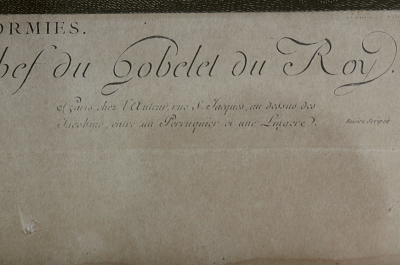 ORMIES.
hef du Gobelet du Roy.
A Paris chez l'Auteur, rue S. Jacques, au dessus des
Jacobins, entre un Perruquier et une Lingere.